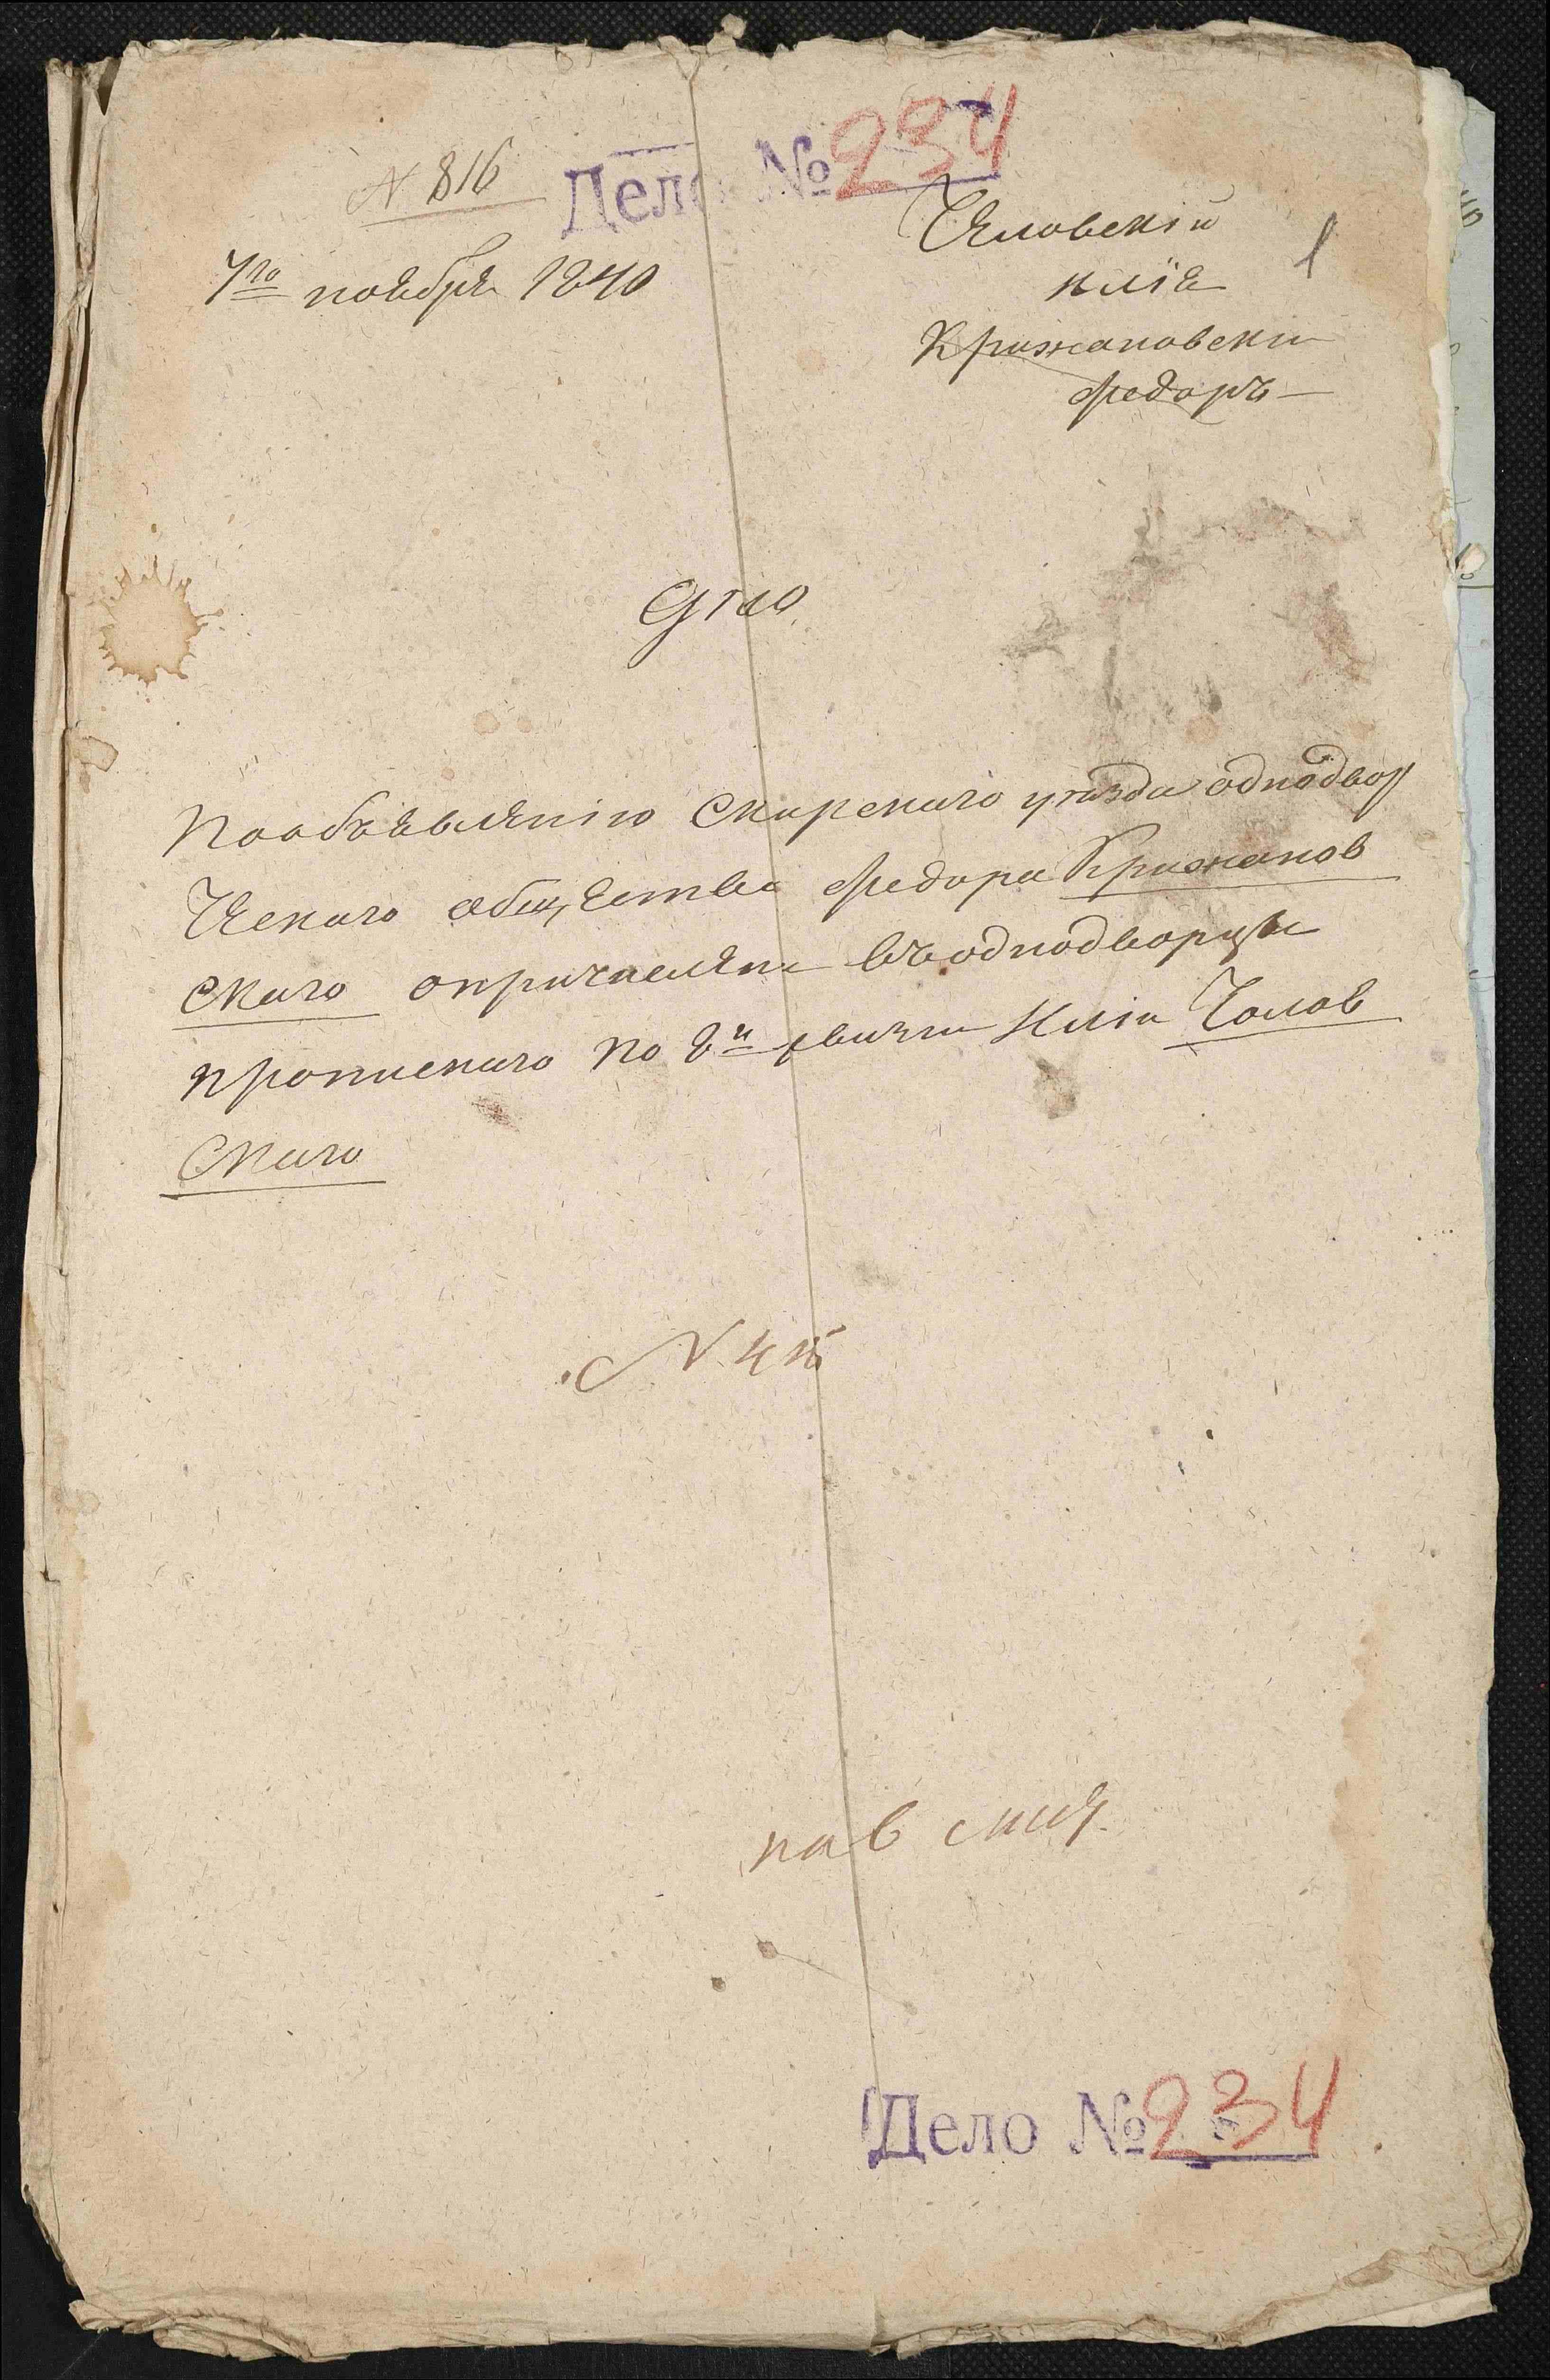 N 816
Дело № 234
7го ноября 1840
Человскій
илія
Крижановскій
Федоръ
1
Дѣло
По объявленію Сквирскаго уѣзда однодвор
ческаго общества Федора Крижанов
скаго о причислени въ однодворцы
прописнаго по 8й ревизіи Иліи Чолов
скаго
N
на 6
Дело № 234